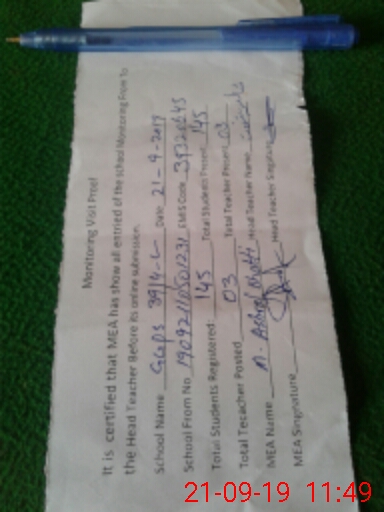 Monitoring Visit Proof
It is certified that MEA has show all entried of the school Monitoring From To
the Head Teacher Before its online submission.
School Name GGPS 39/4-L Date 21-9-2019
School From No 19092110501231 EMIS Code 39320645
Total Students Registered 145 Total Students Present 145
Total Tecacher Posted 03 Total Teacher Present 03
MEA Name M. Ashraf Bhatti Head Teacher Name
MEA Singnature Head Teacher Singnature
21-09-19 11:49